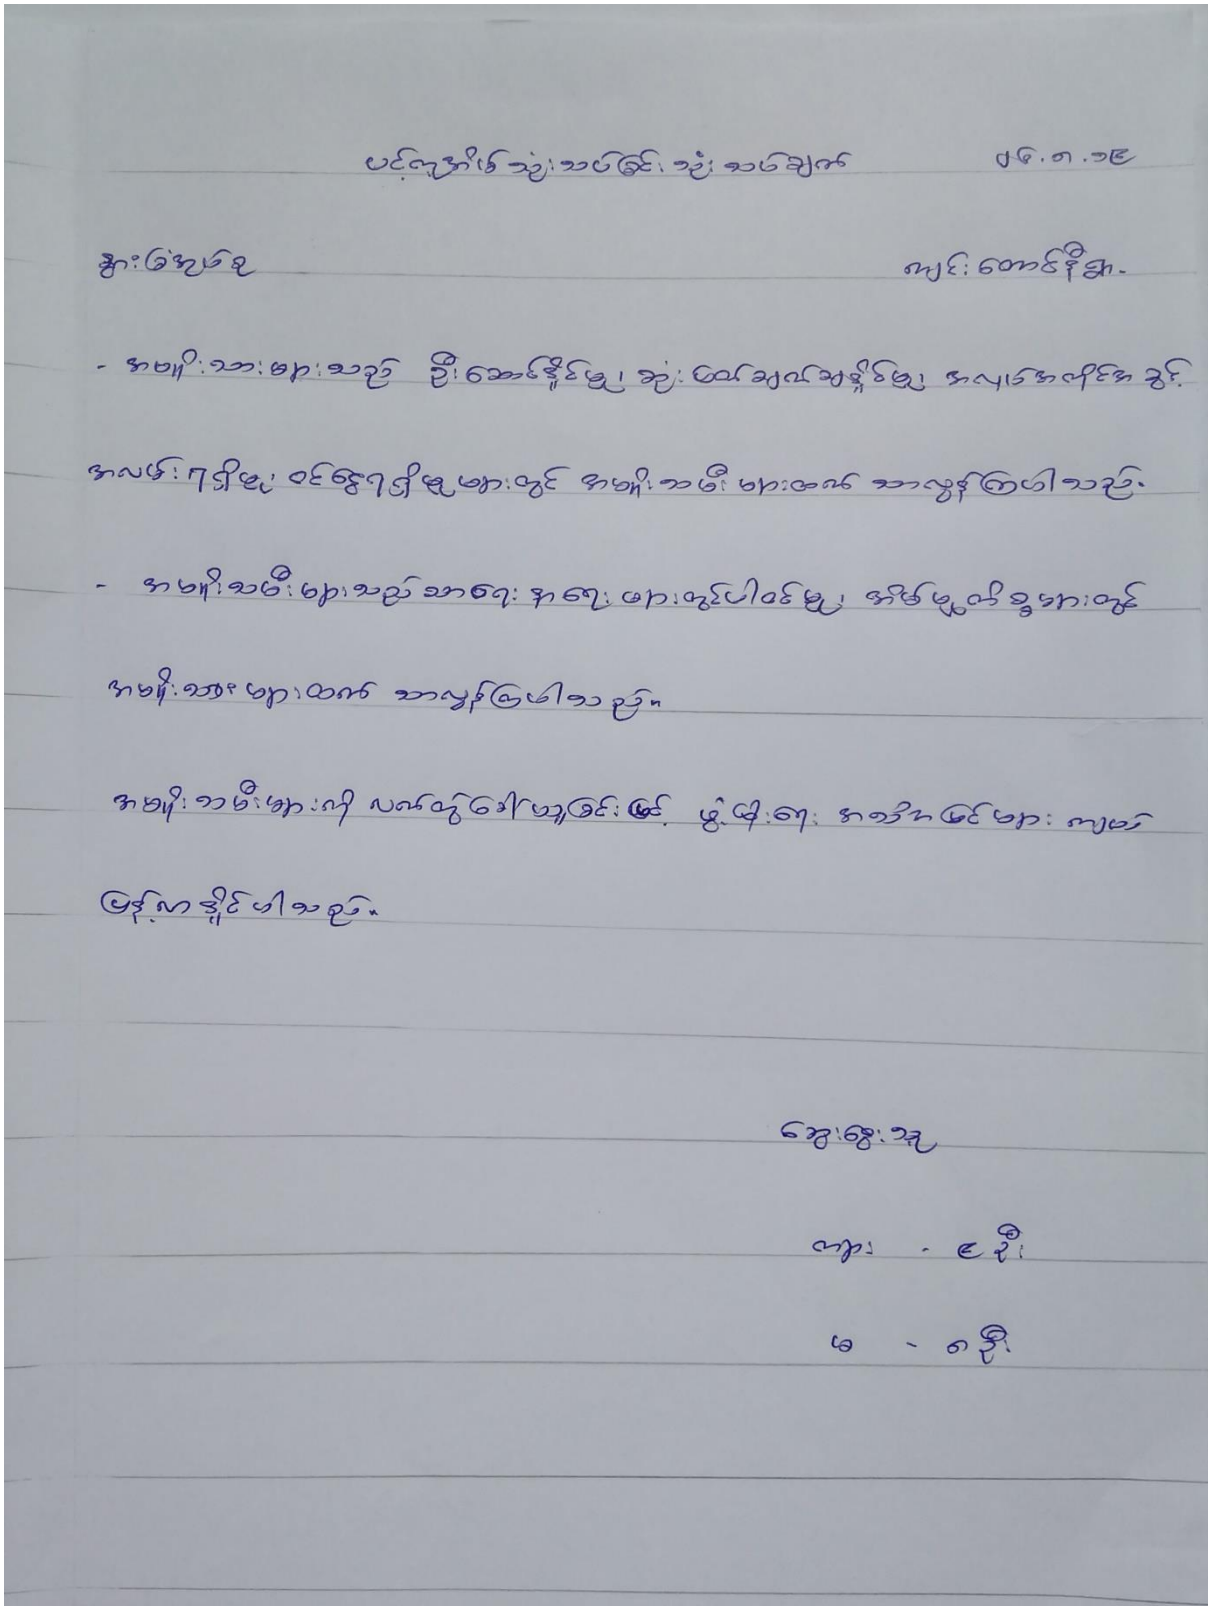 ပင့်ကူအိမ်သုံးသပ်ခြင်း သုံးသပ်ချက် ၂၆.၈.၁၉
နွားခြံအုပ်စု ကျင်းတောင်နီရွာ.
- အမျိုးသားများသည် ဦးဆောင်နိုင်မှု၊ ဆုံးဖြတ်ချက်ချနိုင်မှု၊ အလုပ်အကိုင်အခွင့်
အလမ်းရရှိမှု၊ ဝင်ငွေရရှိမှုများတွင် အမျိုးသမီးများထက် သာလွန်ကြပါသည်.
- အမျိုးသမီးများသည် သာရေး နာရေးများတွင်ပါဝင်မှု၊ အိမ်မှုကိစ္စများတွင်
အမျိုးသားများထက် သာလွန်ကြပါသည်။
အမျိုးသမီးများကို လက်တွဲခေါ်ယူခြင်းဖြင့် ဖွံ့ဖြိုးရေး အသိအမြင်များ ကျယ်
ပြန့်လာနိုင်ပါသည်။
ဆွေးနွေးသူ
ကျား - ၉ ဦး
မ - ၈ ဦး